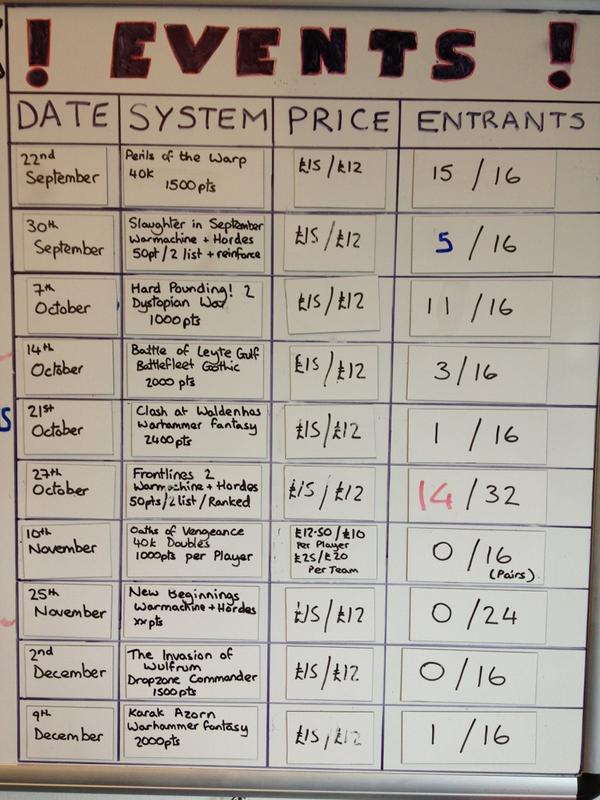 ! EVENTS !
DATE SYSTEM PRICE ENTRANTS
22nd September
Perils of the Warp
40K
1500pts
£15/£12
15/16
30th September
Slaughter in September
Warmachine + Hordes
50pt/2 list + reinforce
£15/£12
5/16
7th October
Hard Pounding! 2
Dystopian War
1000pts
£15/£12
11/16
14th October
Battle of Leyte Gulf
Battlefleet Gothic
2000 pts
£15/£12
3/16
21st October
Clash at Waldenhas
Warhammer fantasy
2400pts
£15/£12
1/16
27th October
Frontlines 2
Warmachine + Hordes
50pts/2list/Ranked
£15/£12
14/32
10th November
Oaths of Vengeance
40K Doubles
1000pts per Player
£12.50/£10
Per Player
£25/£20
Per Team
0/16
(Pairs)
25th November
New Beginnings
Warmachine + Hordes
xxpts
£15/£12
0/24
2nd December
The Invasion of
Wulfrum
Dropzone Commander
1500pts
£15/£12
0/16
9th December
Karak Azorn
Warhammer fantasy
2000pts
£15/£12
1/16